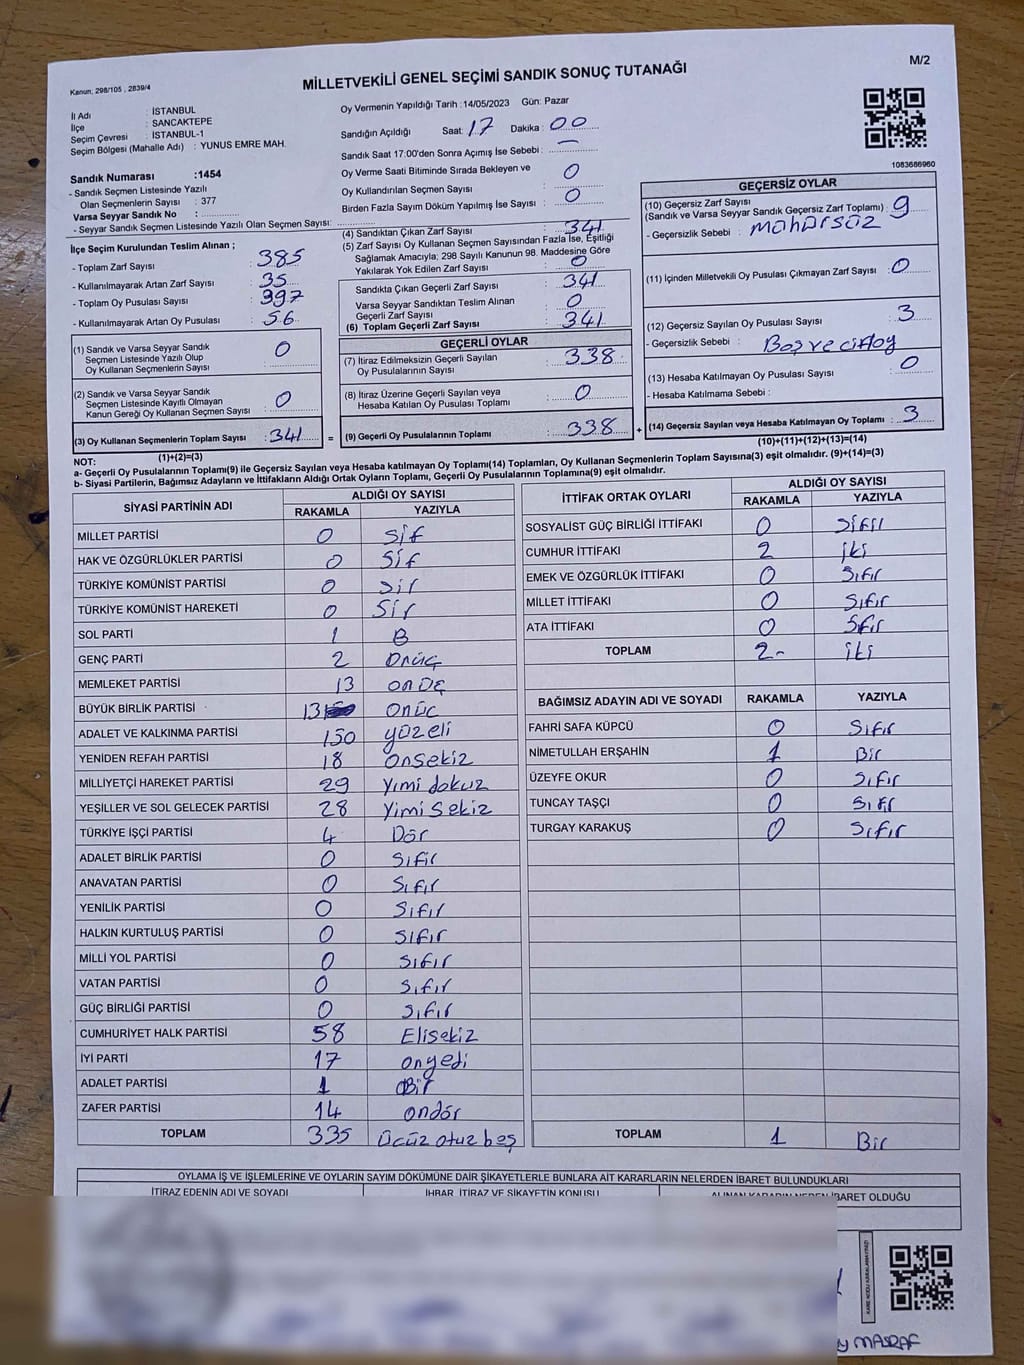 M/2
Kanun; 298/105 , 2839/4
MİLLETVEKİLİ GENEL SEÇİMİ SANDIK SONUÇ TUTANAĞI
İl Adı : İSTANBUL
İlçe : SANCAKTEPE
Seçim Çevresi : İSTANBUL-1
Seçim Bölgesi (Mahalle Adı) : YUNUS EMRE MAH.
Sandık Numarası :1454
- Sandık Seçmen Listesinde Yazılı
Olan Seçmenlerin Sayısı : 377
Varsa Seyyar Sandık No :
- Seyyar Sandık Seçmen Listesinde Yazılı Olan Seçmen Sayısı:
Oy Vermenin Yapıldığı Tarih :14/05/2023 Gün: Pazar
Sandığın Açıldığı Saat: 17 Dakika : 00
Sandık Saat 17:00'den Sonra Açımış İse Sebebi : —
Oy Verme Saati Bitiminde Sırada Bekleyen ve
Oy Kullandırılan Seçmen Sayısı : 0
Birden Fazla Sayım Döküm Yapılmış İse Sayısı : 0
1083686960
İlçe Seçim Kurulundan Teslim Alınan ;
- Toplam Zarf Sayısı : 385
- Kullanılmayarak Artan Zarf Sayısı : 35
- Toplam Oy Pusulası Sayısı : 397
- Kullanılmayarak Artan Oy Pusulası : 56
(1) Sandık ve Varsa Seyyar Sandık
Seçmen Listesinde Yazılı Olup
Oy Kullanan Seçmenlerin Sayısı : 0
(2) Sandık ve Varsa Seyyar Sandık
Seçmen Listesinde Kayıtlı Olmayan
Kanun Gereği Oy Kullanan Seçmen Sayısı : 0
(3) Oy Kullanan Seçmenlerin Toplam Sayısı : 341 =
(1)+(2)=(3)
(4) Sandıktan Çıkan Zarf Sayısı : 341
(5) Zarf Sayısı Oy Kullanan Seçmen Sayısından Fazla İse, Eşitliği
Sağlamak Amacıyla; 298 Sayılı Kanunun 98. Maddesine Göre
Yakılarak Yok Edilen Zarf Sayısı : 0
Sandıkta Çıkan Geçerli Zarf Sayısı : 341
Varsa Seyyar Sandıktan Teslim Alınan
Geçerli Zarf Sayısı : 0
(6) Toplam Geçerli Zarf Sayısı : 341
GEÇERLİ OYLAR
(7) İtiraz Edilmeksizin Geçerli Sayılan
Oy Pusulalarının Sayısı : 338
(8) İtiraz Üzerine Geçerli Sayılan veya
Hesaba Katılan Oy Pusulası Toplamı : 0
(9) Geçerli Oy Pusulalarının Toplamı : 338 +
GEÇERSİZ OYLAR
(10) Geçersiz Zarf Sayısı
(Sandık ve Varsa Seyyar Sandık Geçersiz Zarf Toplamı) : 9
- Geçersizlik Sebebi : mühürsüz
(11) İçinden Milletvekili Oy Pusulası Çıkmayan Zarf Sayısı : 0
(12) Geçersiz Sayılan Oy Pusulası Sayısı : 3
- Geçersizlik Sebebi :
(13) Hesaba Katılmayan Oy Pusulası Sayısı : 0
- Hesaba Katılmama Sebebi :
(14) Geçersiz Sayılan veya Hesaba Katılmayan Oy Toplamı : 3
(10)+(11)+(12)+(13)=(14)
NOT:
a- Geçerli Oy Pusulalarının Toplamı(9) ile Geçersiz Sayılan veya Hesaba katılmayan Oy Toplamı(14) Toplamları, Oy Kullanan Seçmenlerin Toplam Sayısına(3) eşit olmalıdır. (9)+(14)=(3)
b- Siyasi Partilerin, Bağımsız Adayların ve İttifakların Aldığı Ortak Oyların Toplamı, Geçerli Oy Pusulalarının Toplamına(9) eşit olmalıdır.
SİYASİ PARTİNİN ADI ALDIĞI OY SAYISI
RAKAMLA YAZIYLA
MİLLET PARTİSİ 0 sif
HAK VE ÖZGÜRLÜKLER PARTİSİ 0 sif
TÜRKİYE KOMÜNİST PARTİSİ 0 Sir
TÜRKİYE KOMÜNİST HAREKETİ 0 Sir
SOL PARTİ 1 B
GENÇ PARTİ 2 Onüç
MEMLEKET PARTİSİ 13 onüç
BÜYÜK BİRLİK PARTİSİ 13 onüc
ADALET VE KALKINMA PARTİSİ 150 yüzeli
YENİDEN REFAH PARTİSİ 18 onsekiz
MİLLİYETÇİ HAREKET PARTİSİ 29 yimi dokuz
YEŞİLLER VE SOL GELECEK PARTİSİ 28 yimi sekiz
TÜRKİYE İŞÇİ PARTİSİ 4 Dör
ADALET BİRLİK PARTİSİ 0 Sıfir
ANAVATAN PARTİSİ 0 Sıfır
YENİLİK PARTİSİ 0 Sıfır
HALKIN KURTULUŞ PARTİSİ 0 Sıfır
MİLLİ YOL PARTİSİ 0 Sıfır
VATAN PARTİSİ 0 Sıfır
GÜÇ BİRLİĞİ PARTİSİ 0 Sıfır
CUMHURİYET HALK PARTİSİ 58 Elisekiz
İYİ PARTİ 17 onyedi
ADALET PARTİSİ 1 Bir
ZAFER PARTİSİ 14 ondör
TOPLAM 335 ücüz otuz beş
İTTİFAK ORTAK OYLARI ALDIĞI OY SAYISI
RAKAMLA YAZIYLA
SOSYALİST GÜÇ BİRLİĞİ İTTİFAKI 0 Sıfır
CUMHUR İTTİFAKI 2 iki
EMEK VE ÖZGÜRLÜK İTTİFAKI 0 Sıfır
MİLLET İTTİFAKI 0 Sıfır
ATA İTTİFAKI 0 Sıfır
TOPLAM 2- iki
BAĞIMSIZ ADAYIN ADI VE SOYADI RAKAMLA YAZIYLA
FAHRİ SAFA KÜPCÜ 0 Sıfır
NİMETULLAH ERŞAHİN 1 Bir
ÜZEYFE OKUR 0 Sıfır
TUNCAY TAŞÇI 0 Sıfır
TURGAY KARAKUŞ 0 Sıfır
TOPLAM 1 Bir
OYLAMA İŞ VE İŞLEMLERİNE VE OYLARIN SAYIM DÖKÜMÜNE DAİR ŞİKAYETLERLE BUNLARA AİT KARARLARIN NELERDEN İBARET BULUNDUKLARI
İTİRAZ EDENİN ADI VE SOYADI İHBAR, İTİRAZ VE ŞİKAYETİN KONUSU ALINAN KARARIN NEDEN İBARET OLDUĞU
MASRAF